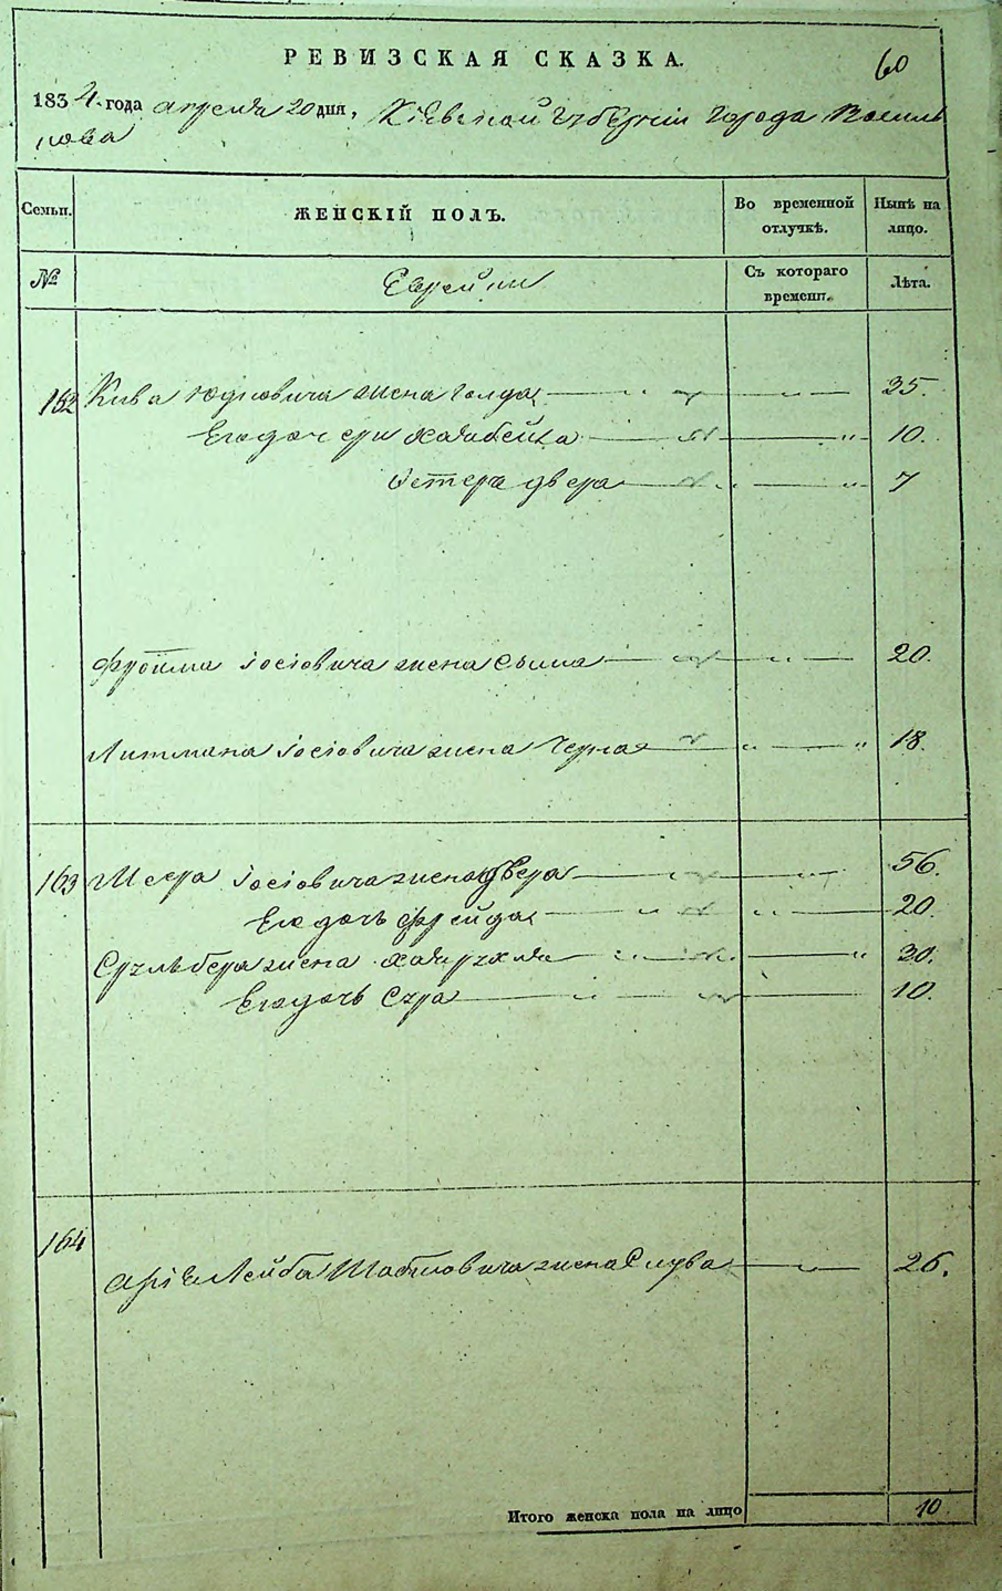 60
РЕВИЗСКАЯ СКАЗКА.
1834 года апреля 20 дня, Кіевской губерніи города Василь
кова
Семьи. ЖЕНСКІЙ ПОЛЪ. Во временной отлучкѣ. Нынѣ на лицо.
№ Еврейки Съ котораго времени. Лѣта.
162 Кива Юдковича жена Голда 35.
Его дочери Хаябейла 10.
Естера двера 7
Фроима Іосіовича жена Сима 20.
Литмана Іосіовича жена Черна 18.
163 Меера Іосіовича жена Двера 56.
Его дочь Фрейда 20.
Срульбера жена Хаярухля 30.
Его дочь Сура 10.
164
Аріе Лейба жена 26.
Итого женска пола на лицо 10